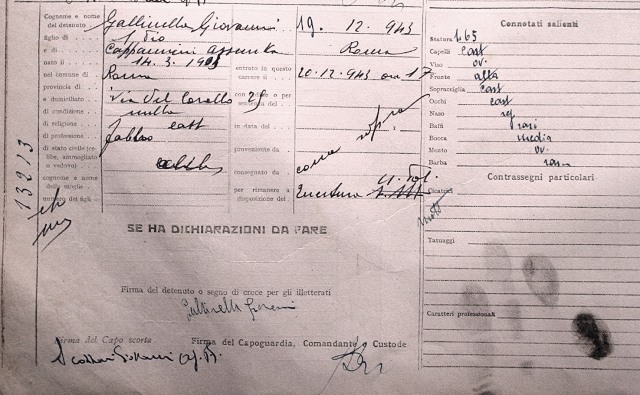 Cognome e nome del detenuto Gallinella Giovanni 19. 12. 943
figlio di
e di Cappannini Assunta Roma
nato il 14. 3. entrato in questo carcere il 20.12.943 ore 17
nel comune di Roma
provincia di
e domiciliato Via del Cavallo
di condizione
di religione catt in data del
di professione fabbro
di stato civile (celibe, ammogliato o vedovo) celibe proveniente da come sopra
cognome e nome della moglie consegnato da
numero dei figli per rimanere a disposizione del
13213
SE HA DICHIARAZIONI DA FARE
Firma del detenuto o segno di croce per gli illetterati
Gallinella Giovanni
Firma del Capo scorta Firma del Capoguardia, Comandante o Custode
Connotati salienti
Statura 1.65
Capelli cast
Viso ov.
Fronte alta
Sopracciglia cast
Occhi cast
Naso reg
Baffi rasi
Bocca media
Mento ov.
Barba rasa
Contrassegni particolari
Cicatrici
Tatuaggi
Caratteri professionali